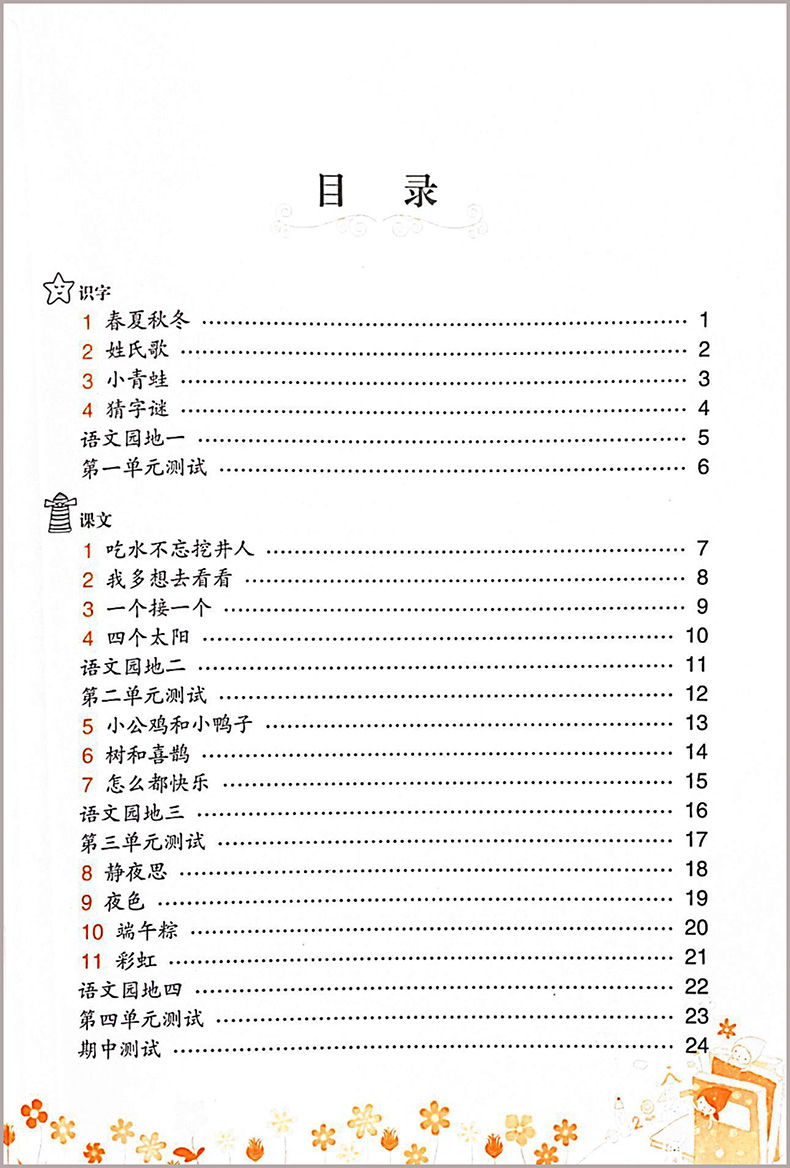 目 录
识字
1 春夏秋冬 …… 1
2 姓氏歌 …… 2
3 小青蛙 …… 3
4 猜字谜 …… 4
语文园地一 …… 5
第一单元测试 …… 6
课文
1 吃水不忘挖井人 …… 7
2 我多想去看看 …… 8
3 一个接一个 …… 9
4 四个太阳 …… 10
语文园地二 …… 11
第二单元测试 …… 12
5 小公鸡和小鸭子 …… 13
6 树和喜鹊 …… 14
7 怎么都快乐 …… 15
语文园地三 …… 16
第三单元测试 …… 17
8 静夜思 …… 18
9 夜色 …… 19
10 端午粽 …… 20
11 彩虹 …… 21
语文园地四 …… 22
第四单元测试 …… 23
期中测试 …… 24